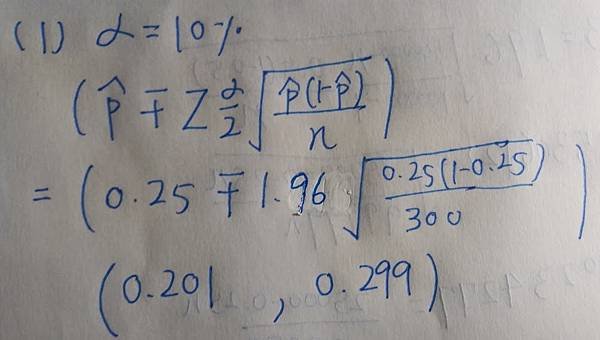 (1) α = 10%
(p̂ ∓ Z α/2 √(p̂(1-p̂)/n))
= (0.25 ∓ 1.96 √(0.25(1-0.25)/300))
(0.201 , 0.299)